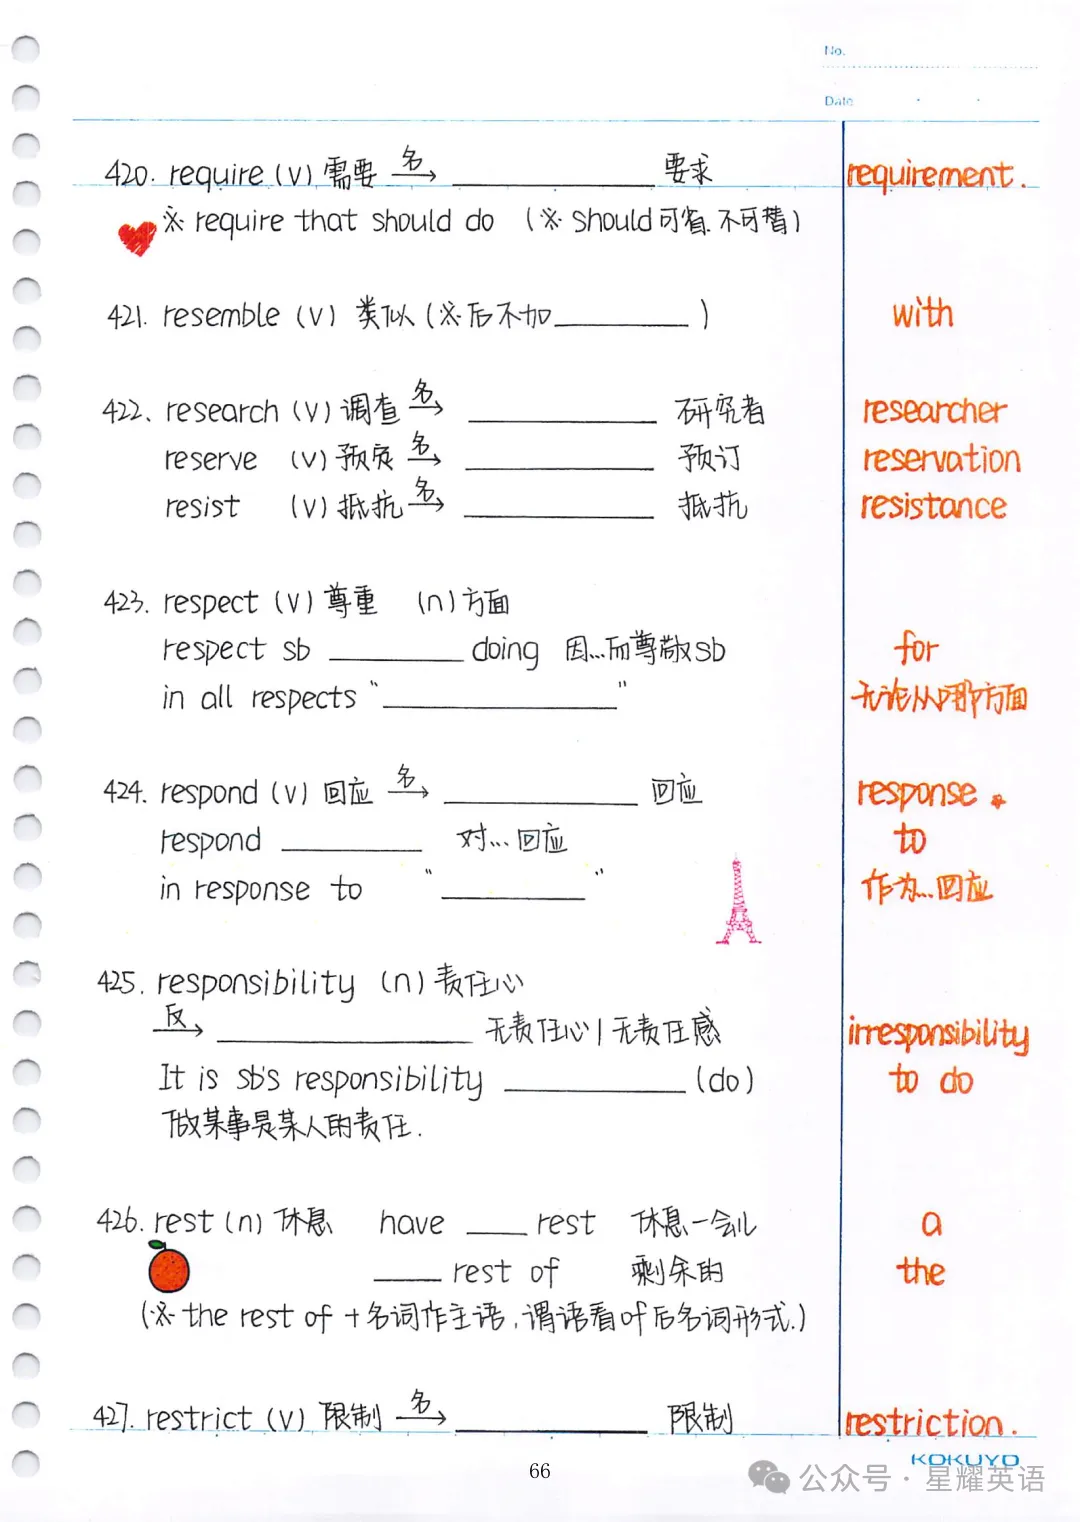 No.
Date
420. require (v) 需要 名→ ____ 要求 requirement.
※ require that should do (※ should可省.不可替)
421. resemble (v) 类似 (※后不加____) with
422. research (v) 调查 名→ ____ 研究者 researcher
reserve (v) 预定 名→ ____ 预订 reservation
resist (v) 抵抗 名→ ____ 抵抗 resistance
423. respect (v) 尊重 (n) 方面
respect sb ____ doing 因...而尊敬sb for
in all respects "____" 无论从哪方面
424. respond (v) 回应 名→ ____ 回应 response
respond ____ 对...回应 to
in response to "____" 作为...回应
425. responsibility (n) 责任心
反→ ____ 无责任心/无责任感 irresponsibility
It is sb's responsibility ____ (do) to do
做某事是某人的责任.
426. rest (n) 休息 have ____ rest 休息一会儿 a
____ rest of 剩余的 the
(※ the rest of +名词作主语,谓语看of后名词形式.)
427. restrict (v) 限制 名→ ____ 限制 restriction.
KOKUYO
66
公众号·星耀英语